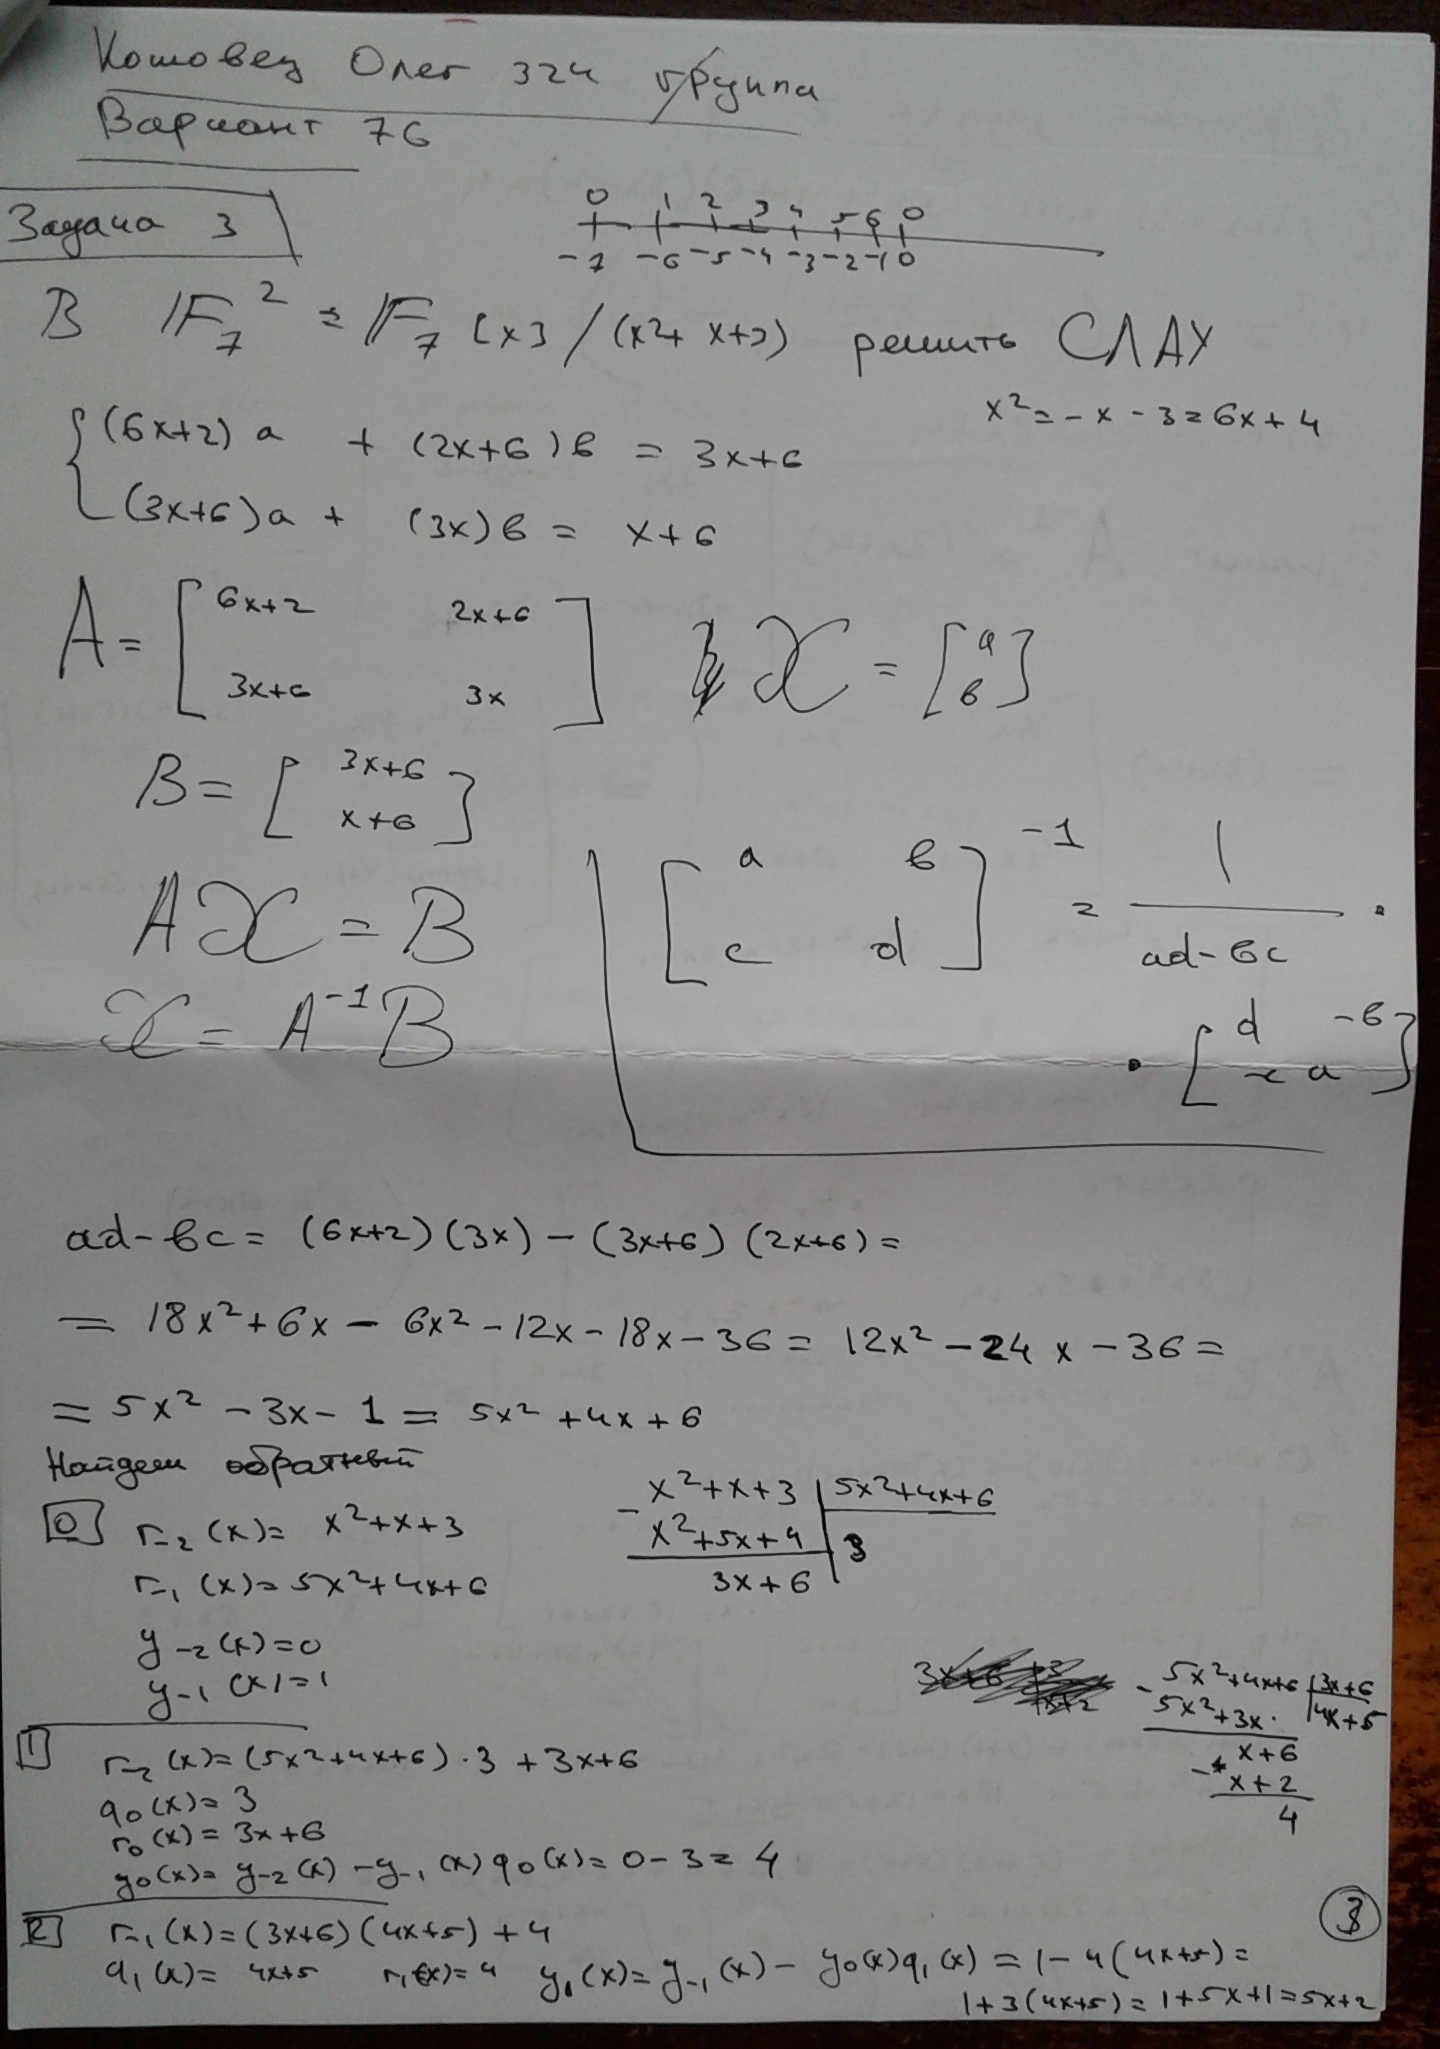 Кошовец Олег 324 группа
Вариант 76
Задача 3
0 1 2 3 4 5 6 0
-7 -6 -5 -4 -3 -2 -1 0
В IF₇² = IF₇ [x] / (x²+x+3) решить СЛАУ
x² = -x - 3 = 6x+4
(6x+2)a + (2x+6)b = 3x+6
(3x+6)a + (3x)b = x+6
A = [ 6x+2 2x+6
3x+6 3x ]
X = [ a
b ]
B = [ 3x+6
x+6 ]
AX = B
X = A⁻¹B
[ a b
c d ]⁻¹ = 1/(ad-bc) ·
· [ d -b
-c a ]
ad-bc = (6x+2)(3x) - (3x+6)(2x+6) =
= 18x²+6x - 6x² - 12x - 18x - 36 = 12x² - 24x - 36 =
= 5x² - 3x - 1 = 5x² + 4x + 6
Найдем обратный
0 r₋₂(x) = x²+x+3
r₋₁(x) = 5x²+4x+6
y₋₂(x)=0
y₋₁(x)=1
- x²+x+3 | 5x²+4x+6
x²+5x+4 | 3
3x+6
- 5x²+4x+6 | 3x+6
5x²+3x | 4x+5
x+6
- x+2
4
1 r₋₂(x) = (5x²+4x+6)·3 + 3x+6
q₀(x) = 3
r₀(x) = 3x+6
y₀(x) = y₋₂(x) - y₋₁(x) q₀(x) = 0-3 = 4
2 r₋₁(x) = (3x+6)(4x+5) + 4
q₁(x) = 4x+5 r₁(x) = 4 y₁(x) = y₋₁(x) - y₀(x)q₁(x) = 1-4(4x+5) =
1+3(4x+5) = 1+5x+1 = 5x+2
3